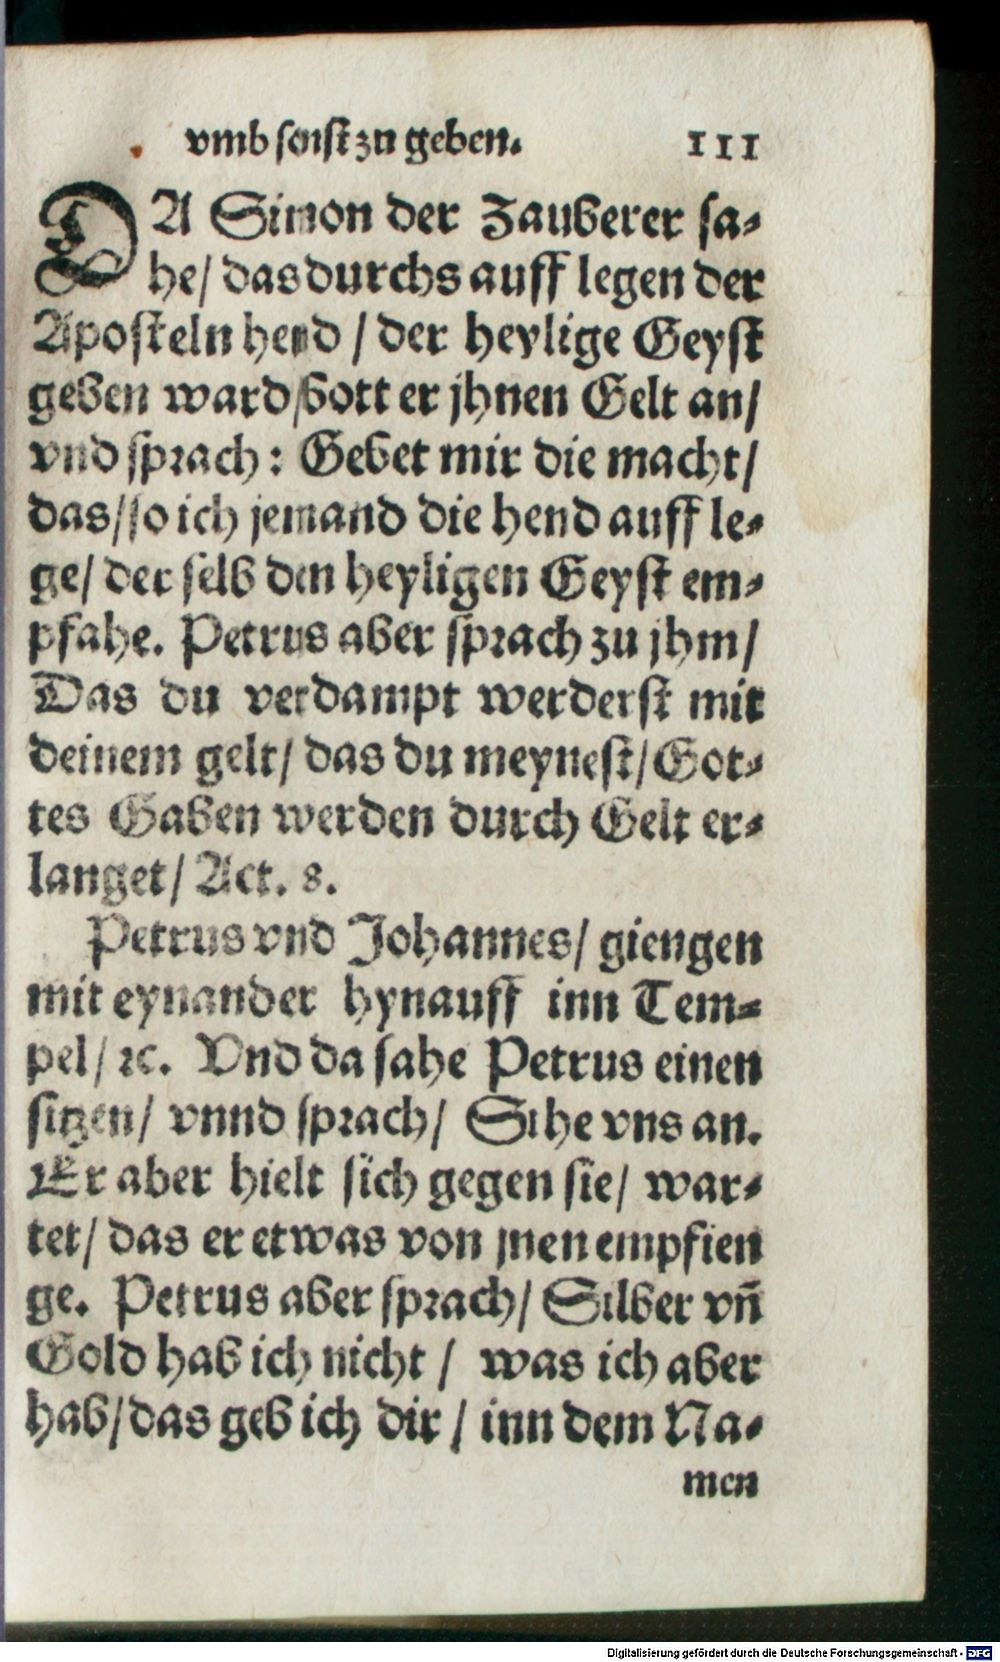 vmb sonst zu geben. 111
DA Simon der Zauberer sa-
he/ das durchs auff legen der
Aposteln hend / der heylige Geyst
geben ward/bott er jhnen Gelt an/
vnd sprach: Gebet mir die macht/
das/so ich jemand die hend auff le-
ge/ der selb den heyligen Geyst em-
pfahe. Petrus aber sprach zu jhm/
Das du verdampt werderst mit
deinem gelt/ das du meynest/ Got-
tes Gaben werden durch Gelt er-
langet/ Act. 8.
Petrus vnd Johannes/ giengen
mit eynander hynauff inn Tem-
pel/ ꝛc. Vnd da sahe Petrus einen
sitzen/ vnnd sprach/ Sihe vns an.
Er aber hielt sich gegen sie/ war-
tet/ das er etwas von jnen empfien
ge. Petrus aber sprach/ Silber vn̄
Gold hab ich nicht / was ich aber
hab/das geb ich dir / inn dem Na-
men
Digitalisierung gefördert durch die Deutsche Forschungsgemeinschaft - DFG